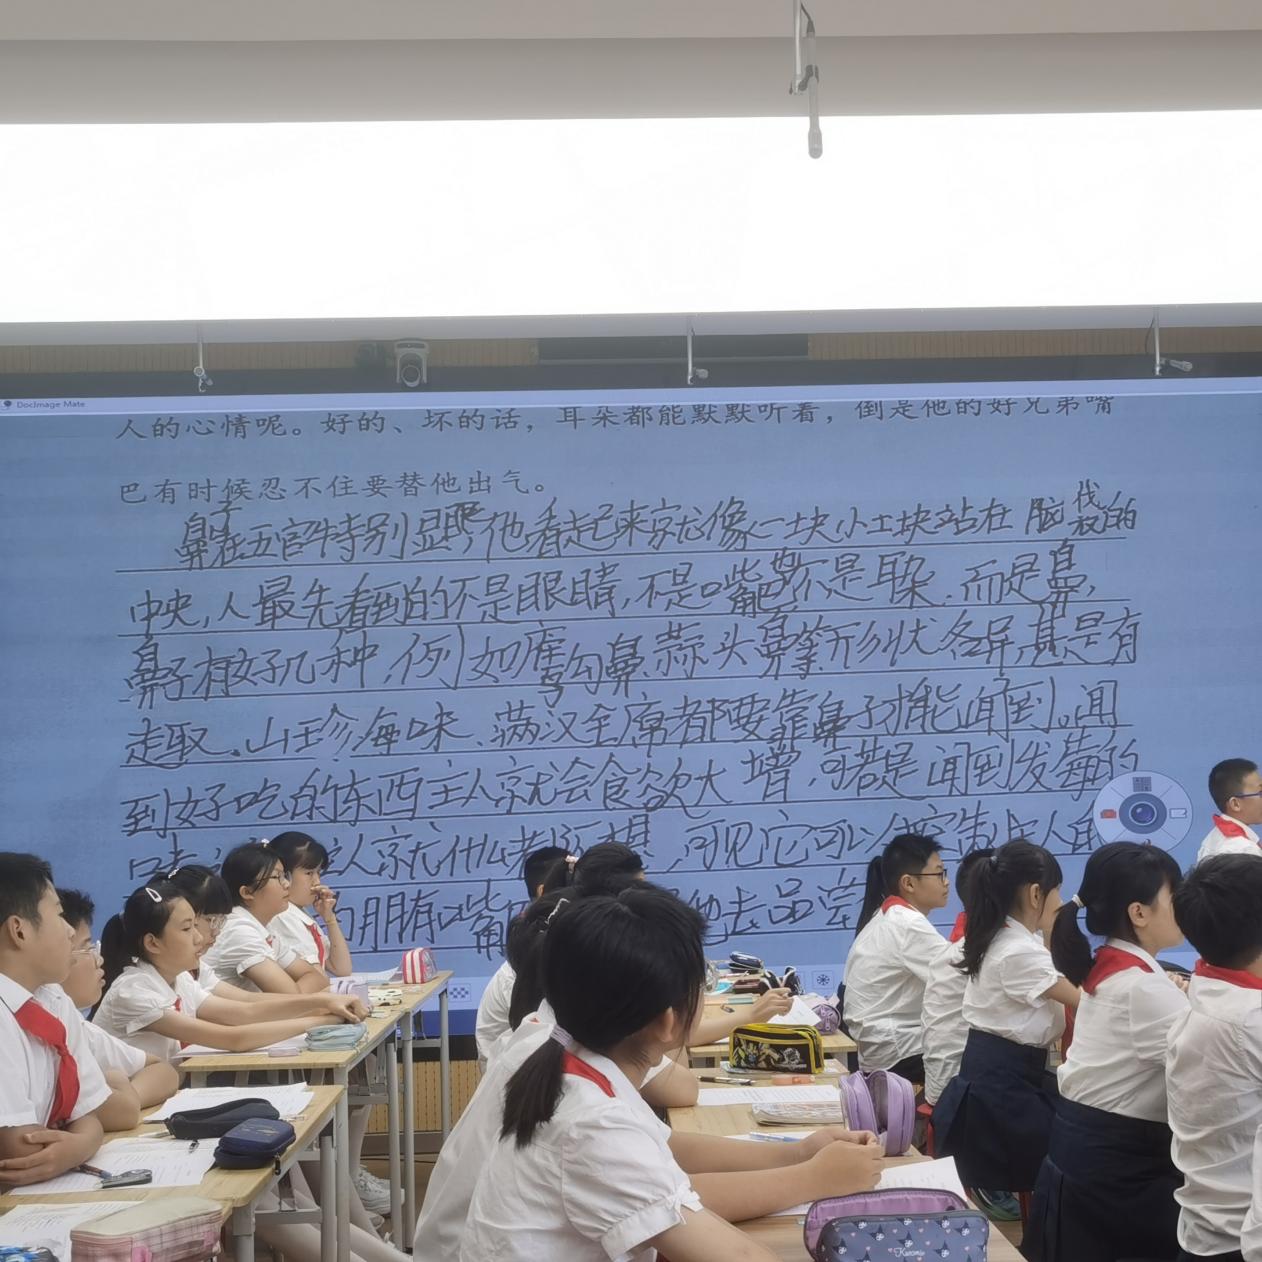 DocImage Mate
人的心情呢。好的、坏的话，耳朵都能默默听着，倒是他的好兄弟嘴
巴有时候忍不住要替他出气。
鼻子在五官中特别显眼，他看起来就像一块小土块站在脑袋的
中央，人最先看到的不是眼睛，不是嘴巴，不是耳朵，而是鼻，
鼻子有好几种，例如鹰勾鼻、蒜头鼻等，形状各异，甚是有
趣、山珍海味、满汉全席都要靠鼻子才能闻到。闻
到好吃的东西主人就会食欲大增，可若是闻到发霉的
人就什么都不想，可见它可以
朋友嘴 他去品尝
Kuromi